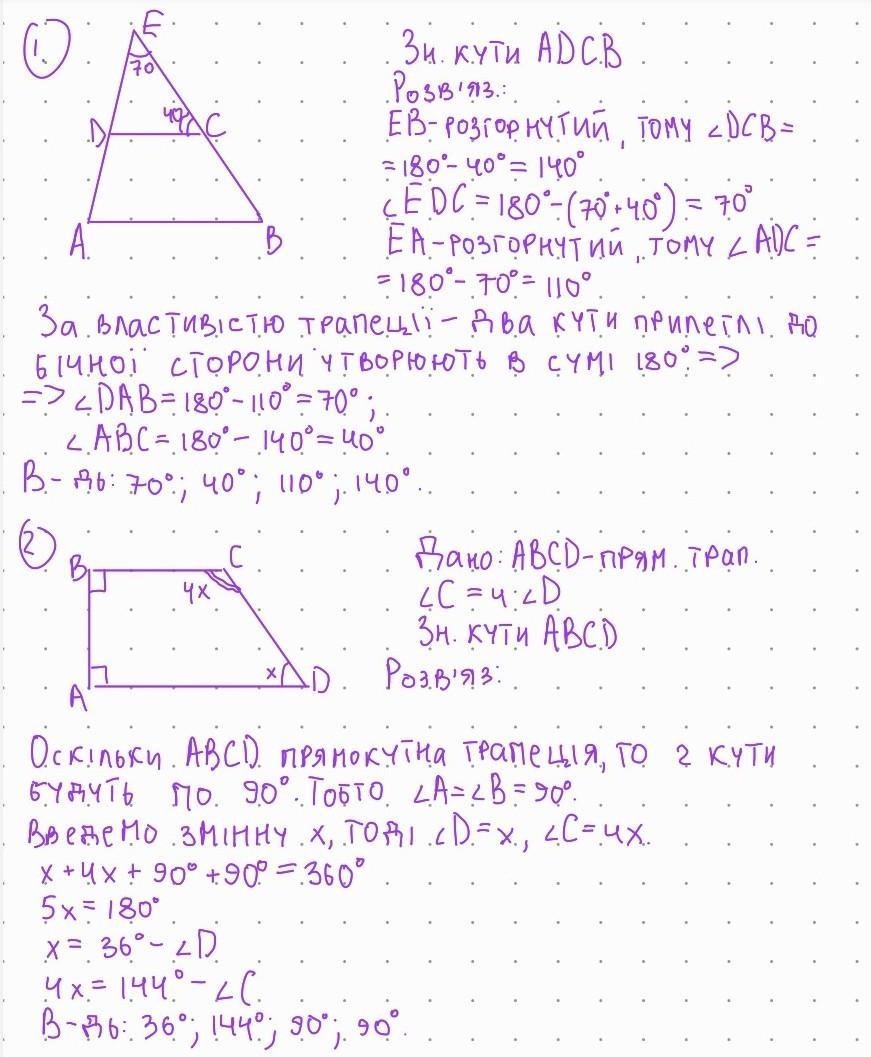 1.
E
70
40
D
C
A
B
Зн. кути ADCB
Розв'яз.:
EB-розгорнутий, тому ∠DCB=
=180°-40°=140°
∠EDC=180°-(70°+40°)=70°
EA-розгорнутий, тому ∠ADC=
=180°-70°=110°
За властивістю трапеції - два кути прилеглі до
бічної сторони утворюють в сумі 180° =>
=> ∠DAB=180°-110°=70°;
∠ABC=180°-140°=40°
В-дь: 70°; 40°; 110°; 140°.
2
B
C
4x
A
x
D
Дано: ABCD-прям. трап.
∠C=4·∠D
Зн. кути ABCD
Розв'яз:
Оскільки ABCD прямокутна трапеція, то 2 кути
будуть по 90°. Тобто ∠A=∠B=90°.
Введемо змінну x, тоді ∠D=x, ∠C=4x.
x+4x+90°+90°=360°
5x=180°
x=36°-∠D
4x=144°-∠C
В-дь: 36°; 144°; 90°; 90°.